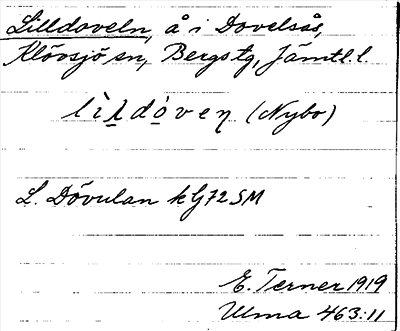 Lilldoveln, å i Dovelsås,
Klövsjö sn, Bergs tg, Jämtl. l.
lìl̠dó̠veꞑ (Nybo)
L. Dövulan kG72SM
E. Terner 1919
Ulma 463:11